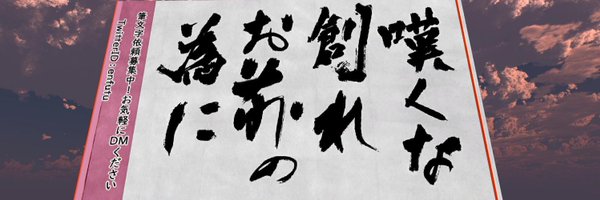 嘆くな
創れ
お前の
為に
筆文字依頼募集中！お気軽にDMください
TwitterID：enfutu